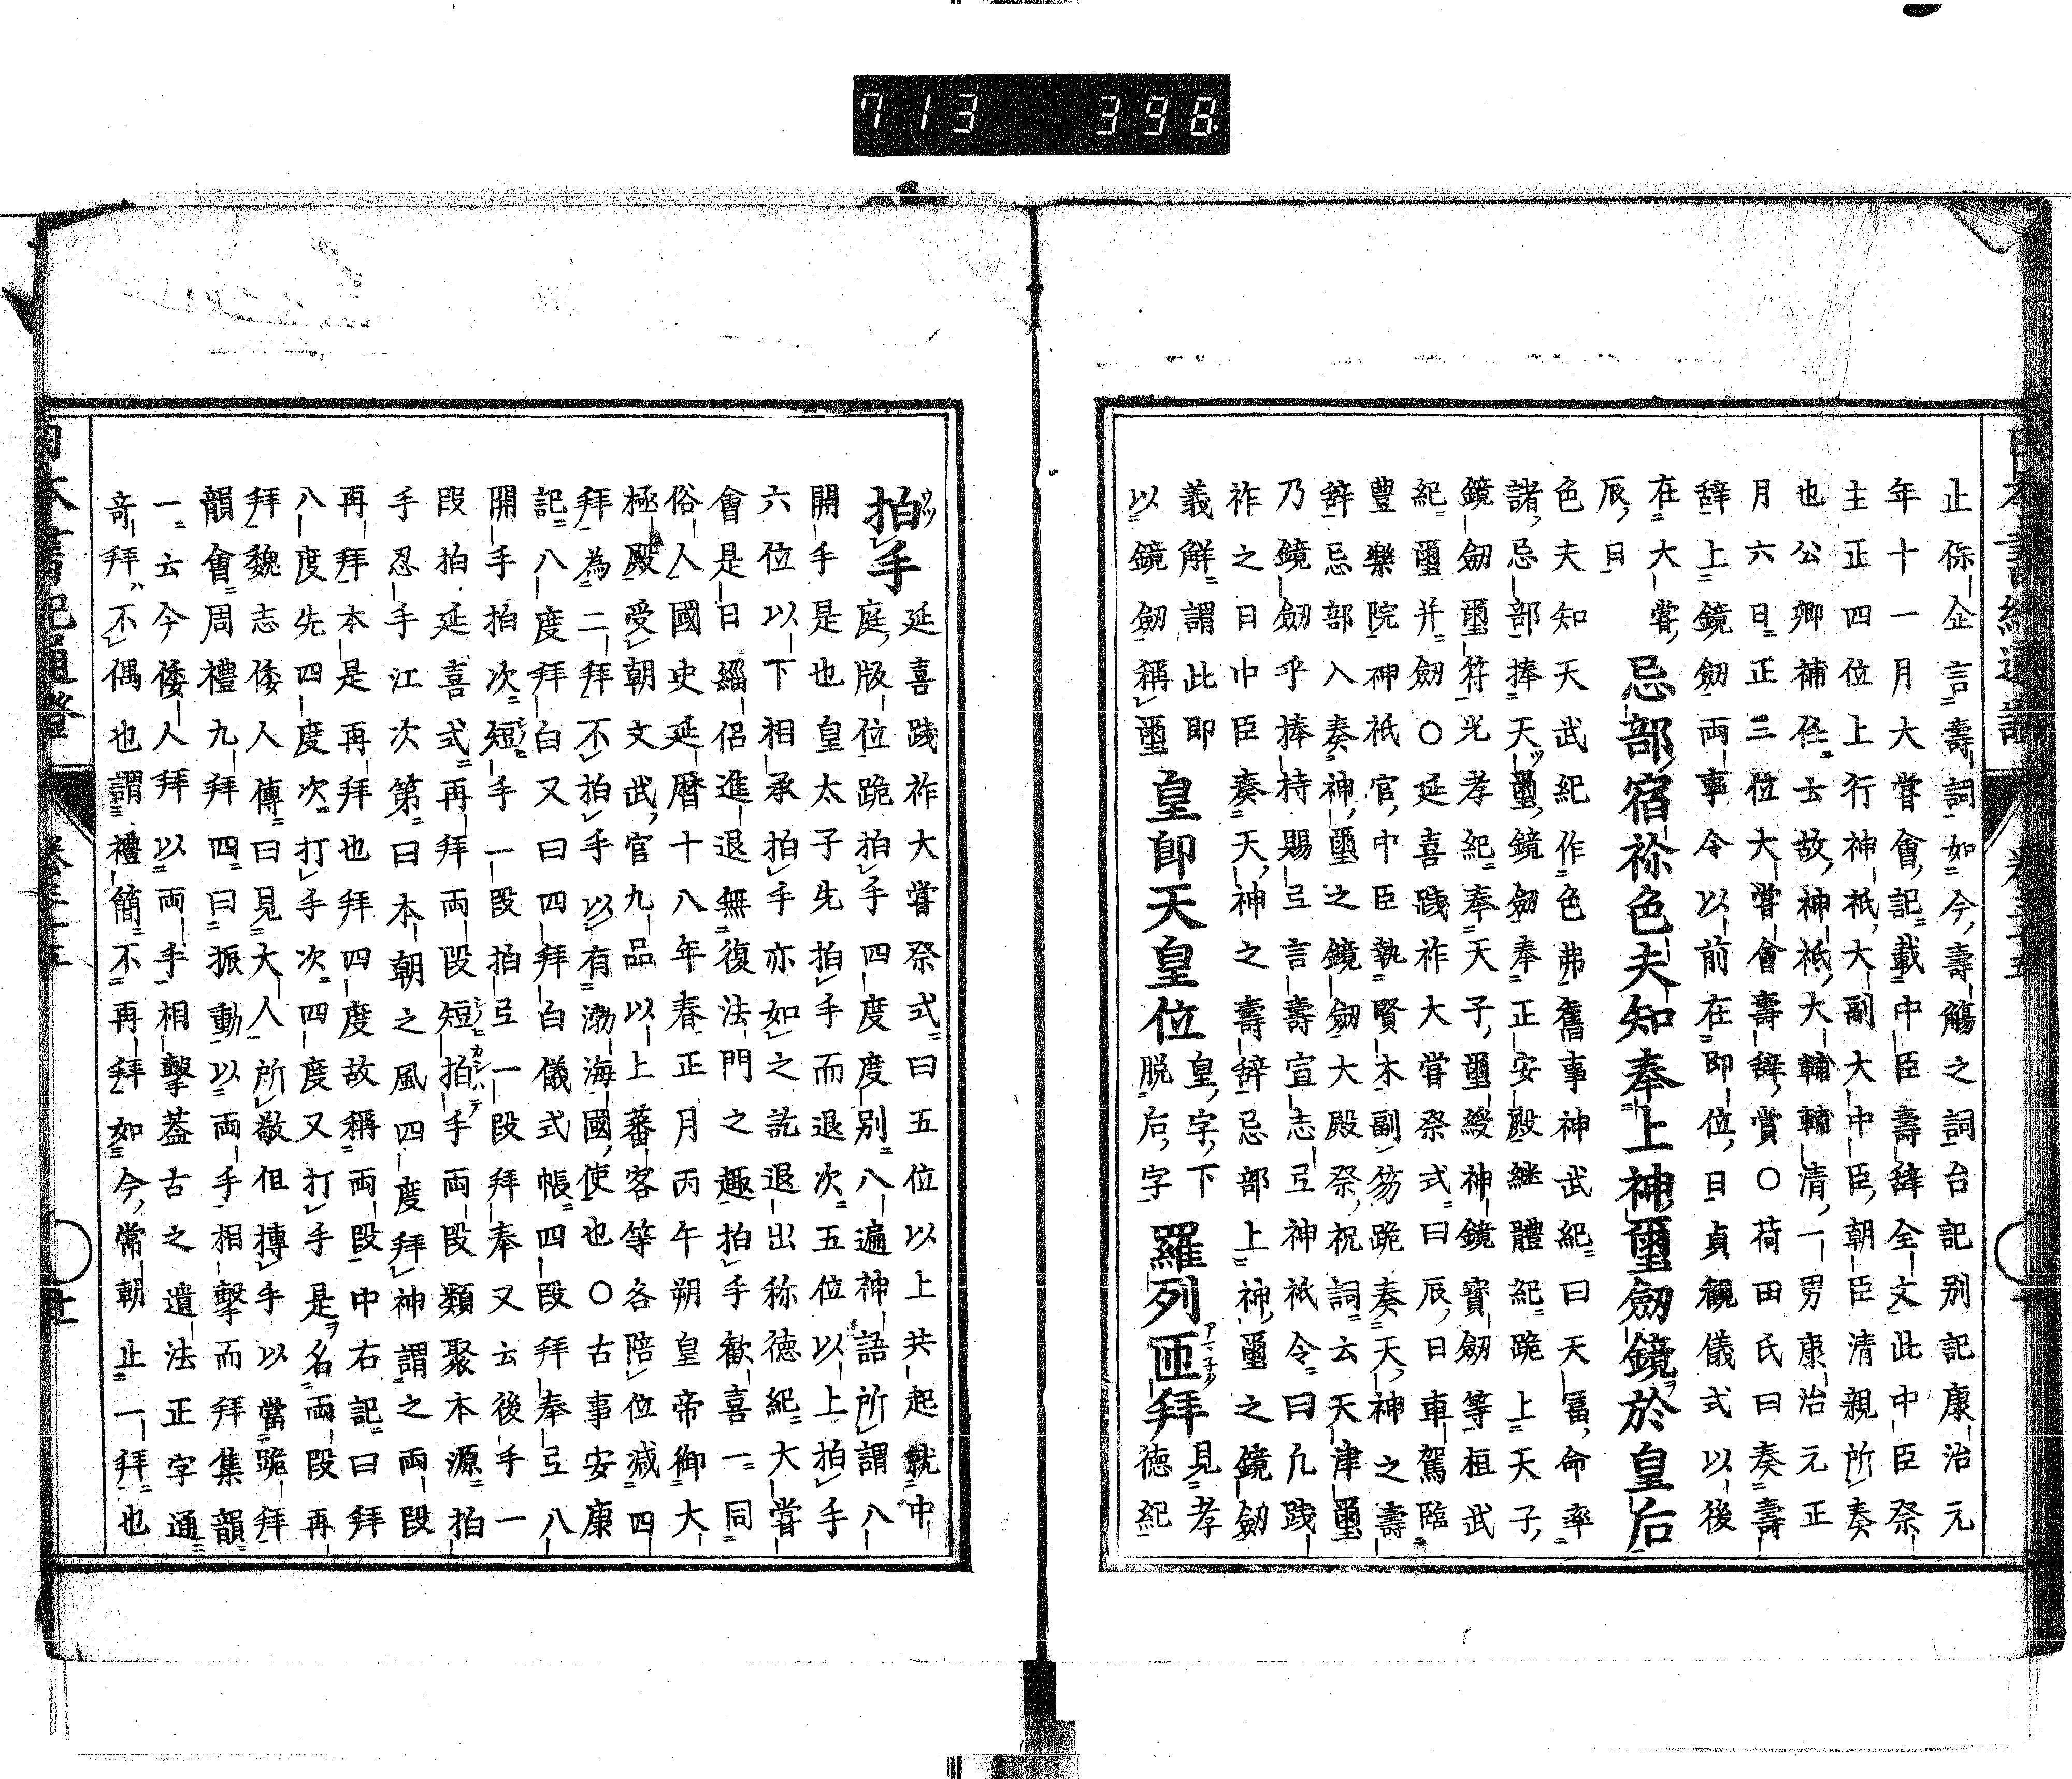 713 398
止保企言壽詞如今壽觴之詞台記別記康治元
年十一月大嘗會記載中臣壽辞全文此中臣祭
主正四位上行神祇大副大中臣朝臣清親所奏
也公卿補任云故神祇大輔輔清一男康治元正
月六日正三位大嘗會壽辞賞○荷田氏曰奏壽
辞上鏡劔両事令以前在即位日貞観儀式以後
在大嘗
辰日
忌部宿祢色夫知奉上神璽劔鏡於皇后
色夫知天武紀作色弗舊事神武紀曰天冨命率
諸忌部捧天璽鏡劔奉正安殿継體紀跪上天子
鏡劔璽符光孝紀奉天子璽綬神鏡寳劔等桓武
紀璽并劔○延喜踐祚大嘗祭式曰辰日車駕臨
豊樂院神祇官中臣執賢木副笏跪奏天神之壽
辞忌部入奏神璽之鏡劔大殿祭祝詞云天津璽
乃鏡劔乎捧持賜弖言壽宣志弖神祇令曰凡踐
祚之日中臣奏天神之壽辞忌部上神璽之鏡劔
義解謂此即
以鏡劔稱璽
皇即天皇位
皇字下
脱后字
羅列匝拜
見孝
徳紀
拍手
延喜踐祚大嘗祭式曰五位以上共起就中
庭版位跪拍手四度度別八遍神語所謂八
開手是也皇太子先拍手而退次五位以上拍手
六位以下相承拍手亦如之訖退出称徳紀大嘗
會是日緇侶進退無復法門之趣拍手歓喜一同
俗人國史延暦十八年春正月丙午朔皇帝御大
極殿受朝文武官九品以上蕃客等各陪位減四
拜為二拜不拍手以有渤海國使也○古事安康
記八度拜白又曰四拜白儀式帳四段拜奉弖八
開手拍次短手一段拍弖一段拜奉又云後手一
段拍延喜式再拜両段短拍手両段類聚本源拍
手忍手江次第曰本朝之風四度拜神謂之両段
再拜本是再拜也拜四度故稱両段中右記曰拜
八度先四度次打手次四度又打手是名両段再
拜魏志倭人傳曰見大人所敬但搏手以當跪拜
韻會周禮九拜四曰振動以両手相擊而拜集韻
一云今倭人拜以両手相擊葢古之遺法正字通
竒拜不偶也謂禮簡不再拜如今常朝止一拜也